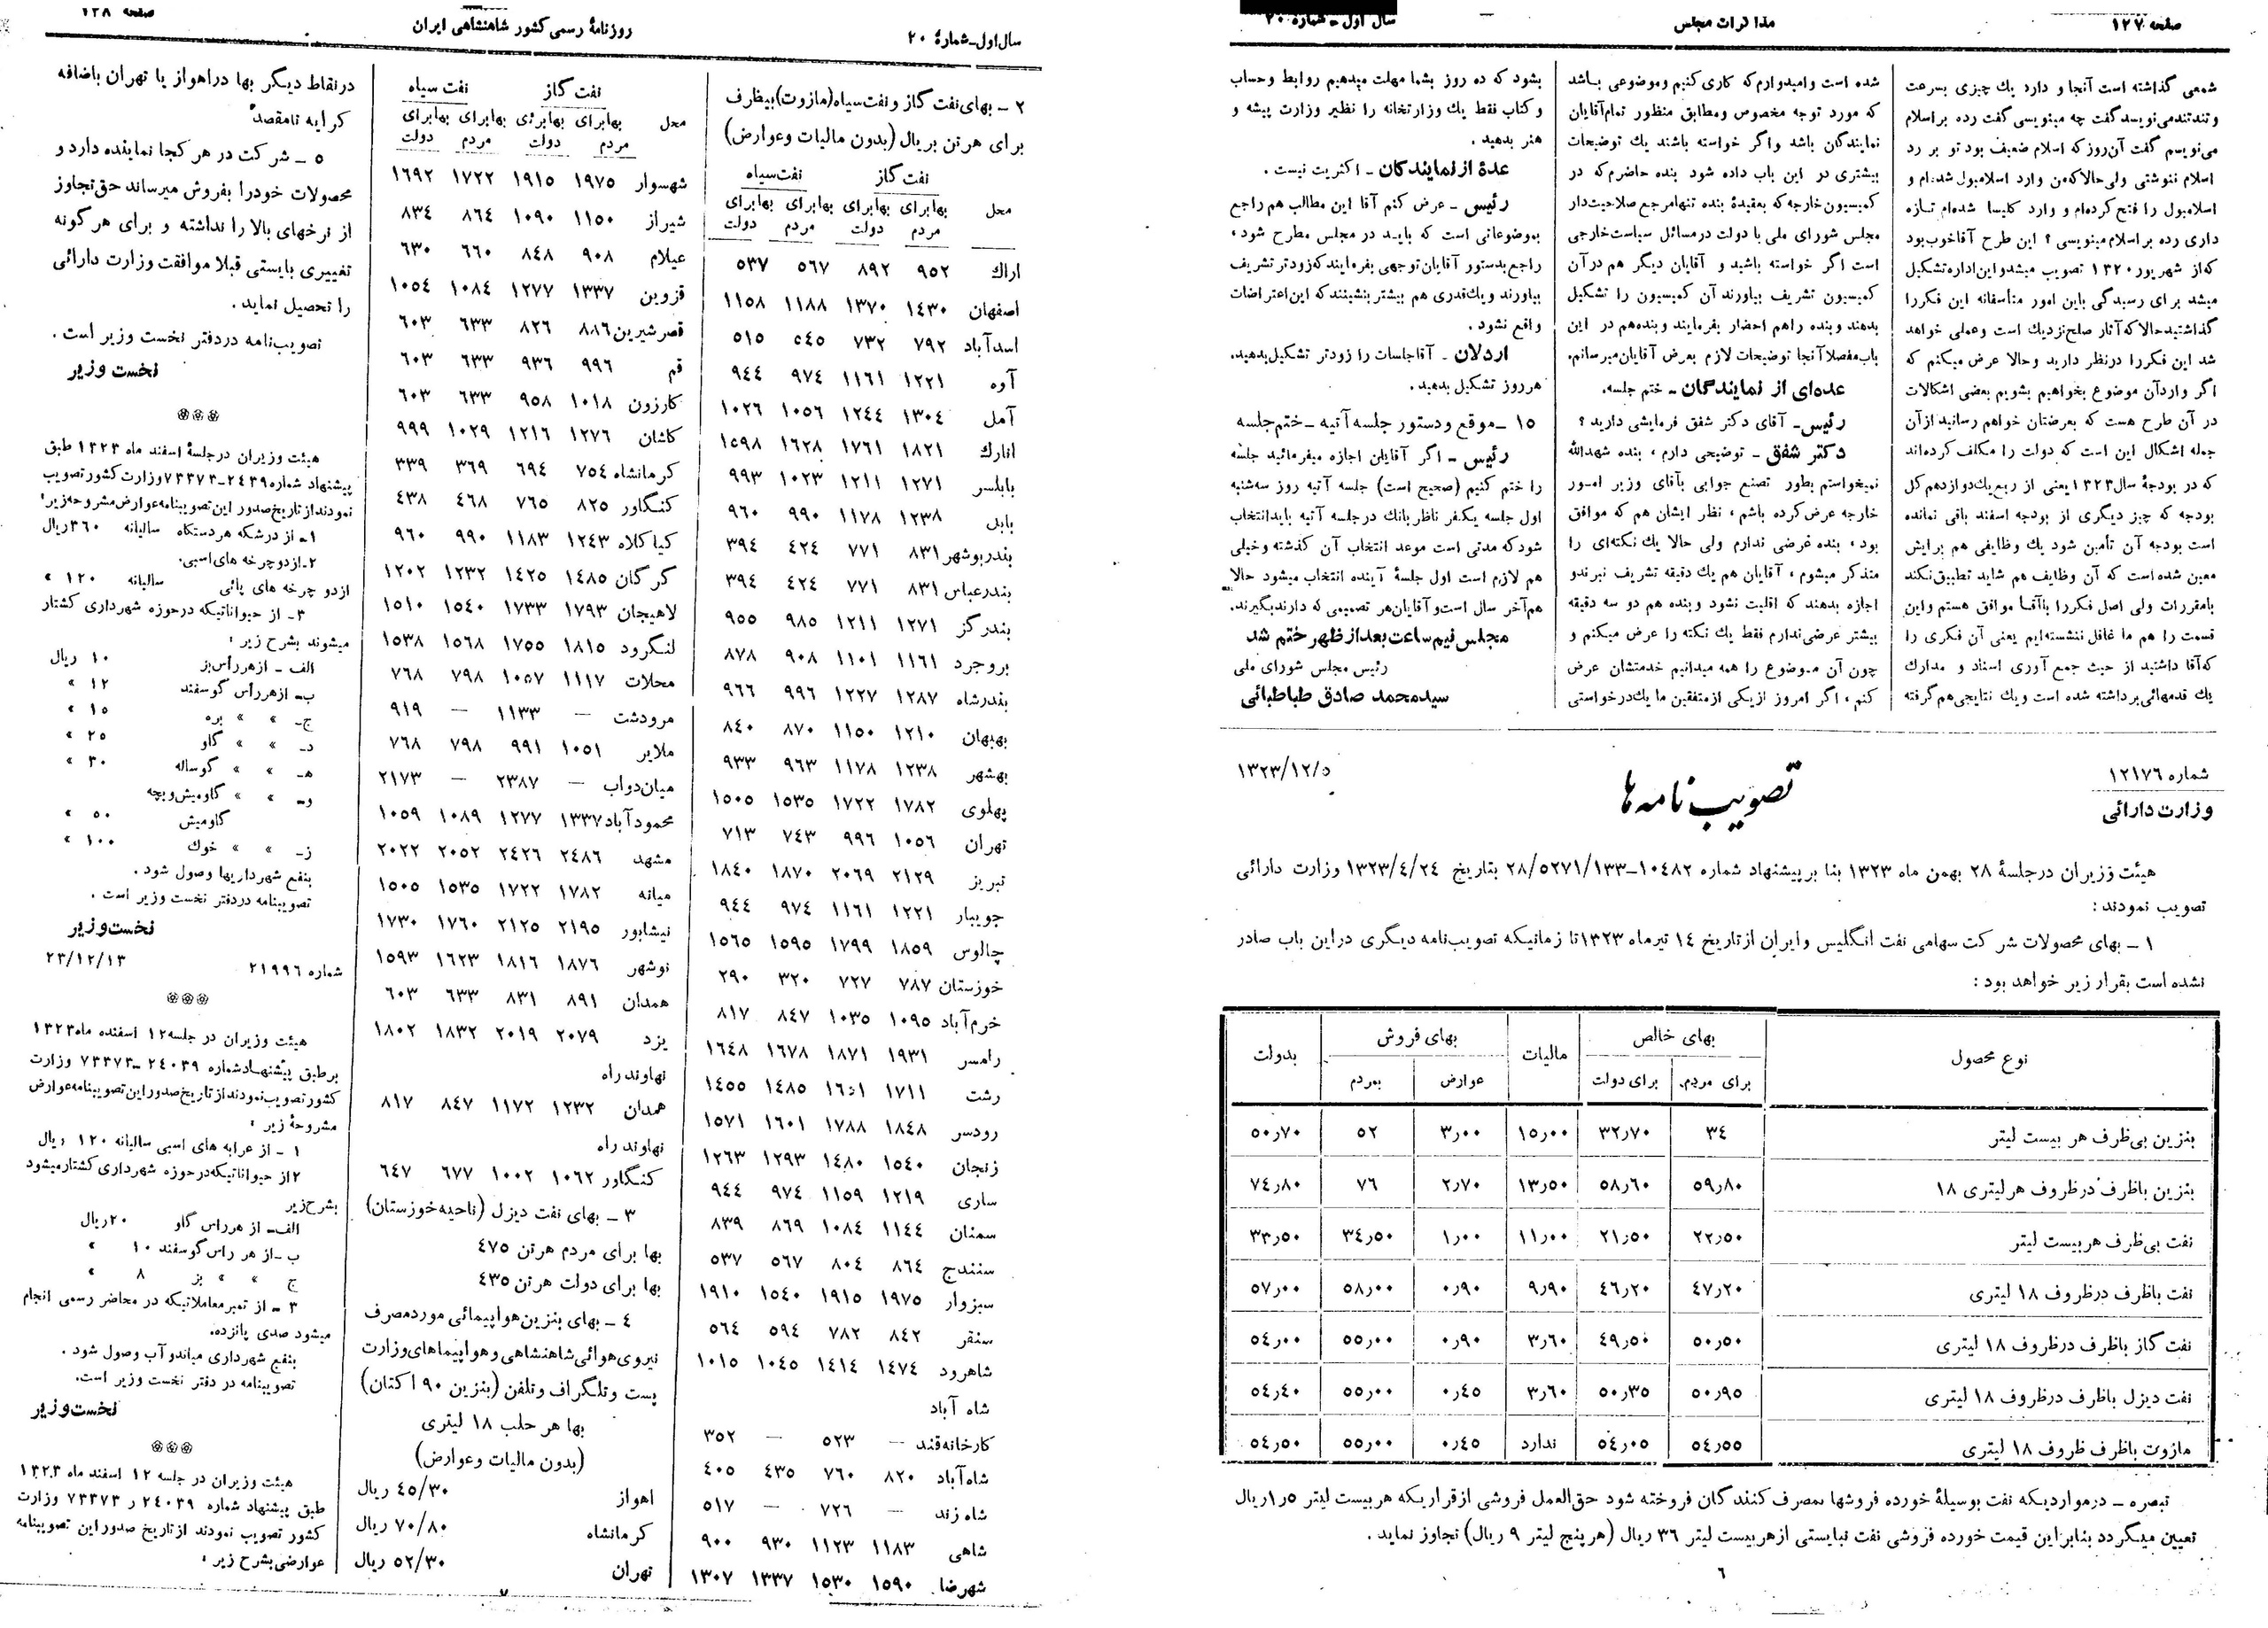 صفحه ۱۲۷
مذاکرات مجلس
سال اول ـ شماره ۲۰
شمعی گذاشته است آنجا و دارد یك چیزی بسرعت
و تندتند می‌نویسد گفت چه مینویسی گفت رده بر اسلام
می‌نویسم گفت آن روز که اسلام ضعیف بود تو بر رد
اسلام ننوشتی ولی حالا که من وارد اسلامبول شده‌ام و
اسلامبول را فتح کرده‌ام و وارد کلیسا شده‌ام تازه
داری رده بر اسلام مینویسی ؟ این طرح آقا خوب بود
که از شهریور ۱۳۲۰ تصویب میشد و این اداره تشکیل
میشد برای رسیدگی باین امور متأسفانه این فکر را
گذاشتید حالا که آثار صلح نزدیك است و عملی خواهد
شد این فکر را در نظر دارید و حالا عرض میکنم که
اگر وارد آن موضوع بخواهیم بشویم بعضی اشکالات
در آن طرح هست که بعرضتان خواهم رسانید از آن
جمله اشکال این است که دولت را مکلف کرده‌اند
که در بودجهٔ سال ۱۳۲۳ یعنی از ربع یك دوازدهم کل
بودجه که چیز دیگری از بودجه اسفند باقی نمانده
است بودجه آن تأمین شود یك وظایفی هم برایش
معین شده است که آن وظایف هم شاید تطبیق نکند
بامقررات ولی اصل فکر را با آقا موافق هستم و این
قسمت را هم ما غافل ننشسته‌ایم یعنی آن فکری را
که آقا داشتید از حیث جمع آوری اسناد و مدارك
یك قدمهائی برداشته شده است و یك نتایجی هم گرفته
شده است و امیدوارم که کاری کنیم و موضوعی باشد
که مورد توجه مخصوص و مطابق منظور تمام آقایان
نمایندگان باشد واگر خواسته باشند یك توضیحات
بیشتری در این باب داده شود بنده حاضرم که در
کمیسیون خارجه که بعقیدهٔ بنده تنها مرجع صلاحیت‌دار
مجلس شورای ملی با دولت در مسائل سیاست خارجی
است اگر خواسته باشید و آقایان دیگر هم در آن
کمیسیون تشریف بیاورند آن کمیسیون را تشکیل
بدهند و بنده را هم احضار بفرمایند و بنده هم در این
باب مفصلا آنجا توضیحات لازم بعرض آقایان میرسانم.
عده‌ای از نمایندگان ـ ختم جلسه.
رئیس ـ آقای دکتر شفق فرمایشی دارید ؟
دکتر شفق ـ توضیحی دارم ، بنده شهدالله
نمیخواستم بطور تصنع جوابی بآقای وزیر امور
خارجه عرض کرده باشم ، نظر ایشان هم که موافق
بود ، بنده غرضی ندارم ولی حالا یك نکته‌ای را
متذکر میشوم ، آقایان هم یك دقیقه تشریف نبرند و
اجازه بدهند که اقلیت نشود و بنده هم دو سه دقیقه
بیشتر عرضی ندارم فقط یك نکته را عرض میکنم و
چون آن موضوع را همه میدانیم خدمتشان عرض
کنم ، اگر امروز از یکی از متفقین ما یك درخواستی
بشود که ده روز بشما مهلت میدهیم روابط و حساب
و کتاب فقط یك وزارتخانه را نظیر وزارت پیشه و
هنر بدهید.
عدهٔ از نمایندگان ـ اکثریت نیست .
رئیس ـ عرض کنم آقا این مطالب هم راجع
بموضوعاتی است که باید در مجلس مطرح شود ،
راجع بدستور آقایان توجهی بفرمایند که زودتر تشریف
بیاورند و یك قدری هم بیشتر بنشینند که این اعتراضات
واقع نشود.
اردلان ـ آقا جلسات را زودتر تشکیل بدهید.
هرروز تشکیل بدهید.
۱۵ ـ موقع و دستور جلسه آتیه ـ ختم جلسه
رئیس ـ اگر آقایان اجازه میفرمائید جلسه
را ختم کنیم (صحیح است) جلسه آتیه روز سه‌شنبه
اول جلسه یکنفر ناظر بانك در جلسه آتیه باید انتخاب
شود که مدتی است موعد انتخاب آن گذشته و خیلی
هم لازم است اول جلسهٔ آینده انتخاب میشود حالا
هم آخر سال است و آقایان هر تصمیمی که دارند بگیرند.
مجلس نیم‌ساعت بعد از ظهر ختم شد
رئیس مجلس شورای ملی
سیدمحمد صادق طباطبائی
شماره ۱۲۱۷۶
۱۳۲۳/۱۲/۵
تصویب‌نامه‌ها
وزارت دارائی
هیئت وزیران درجلسهٔ ۲۸ بهمن ماه ۱۳۲۳ بنا بر پیشنهاد شماره ۱۰۴۸۲ـ۲۸/۵۲۷۱/۱۳۳ بتاریخ ۱۳۲۳/۴/۲۴ وزارت دارائی
تصویب نمودند :
۱ ـ بهای محصولات شرکت سهامی نفت انگلیس و ایران از تاریخ ۱۴ تیرماه ۱۳۲۳ تا زمانیکه تصویب‌نامه دیگری در این باب صادر
نشده است بقرار زیر خواهد بود :
نوع محصول بهای خالص مالیات بهای فروش بدولت
برای مردم. برای دولت عوارض بمردم
بنزین بی‌ظرف هر بیست لیتر ۳۴ ۳۲٫۷۰ ۱۵٫۰۰ ۳٫۰۰ ۵۲ ۵۰٫۷۰
بنزین باظرف درظروف هر لیتری ۱۸ ۵۹٫۸۰ ۵۸٫۶۰ ۱۳٫۵۰ ۲٫۷۰ ۷۶ ۷۴٫۸۰
نفت بی‌ظرف هر بیست لیتر ۲۲٫۵۰ ۲۱٫۵۰ ۱۱٫۰۰ ۱٫۰۰ ۳۴٫۵۰ ۳۳٫۵۰
نفت باظرف درظروف ۱۸ لیتری ۴۷٫۲۰ ۴۶٫۲۰ ۹٫۹۰ ۰٫۹۰ ۵۸٫۰۰ ۵۷٫۰۰
نفت گاز باظرف درظروف ۱۸ لیتری ۵۰٫۵۰ ۴۹٫۵۰ ۳٫۶۰ ۰٫۹۰ ۵۵٫۰۰ ۵۴٫۰۰
نفت دیزل باظرف درظروف ۱۸ لیتری ۵۰٫۹۵ ۵۰٫۳۵ ۳٫۶۰ ۰٫۴۵ ۵۵٫۰۰ ۵۴٫۴۰
مازوت باظرف ظروف ۱۸ لیتری ۵۴٫۵۵ ۵۴٫۰۵ ندارد ۰٫۴۵ ۵۵٫۰۰ ۵۴٫۵۰
تبصره ـ درمواردیکه نفت بوسیلهٔ خورده فروشها بمصرف کنندگان فروخته شود حق‌العمل فروشی از قراریکه هر بیست لیتر ۱٫۵ ریال
تعیین میگردد بنابراین قیمت خورده فروشی نفت نبایستی از هر بیست لیتر ۳۶ ریال (هر پنج لیتر ۹ ریال) تجاوز نماید .
۶
سال اول ـ شمارهٔ ۲۰
روزنامهٔ رسمی کشور شاهنشاهی ایران
صفحه ۱۲۸
۲ ـ بهای نفت گاز و نفت سیاه (مازوت) بیظرف
برای هر تن بریال (بدون مالیات و عوارض)
نفت گاز نفت سیاه
محل بهابرای بهابرای بهابرای بهابرای
مردم دولت مردم دولت
اراك ۹۵۲ ۸۹۲ ۵۶۷ ۵۳۷
اصفهان ۱۴۳۰ ۱۳۷۰ ۱۱۸۸ ۱۱۵۸
اسدآباد ۷۹۲ ۷۳۲ ۵۴۵ ۵۱۵
آوه ۱۲۲۱ ۱۱۶۱ ۹۷۴ ۹۴۴
آمل ۱۳۰۴ ۱۲۴۴ ۱۰۵۶ ۱۰۲۶
انارك ۱۸۲۱ ۱۷۶۱ ۱۶۲۸ ۱۵۹۸
بابلسر ۱۲۷۱ ۱۲۱۱ ۱۰۲۳ ۹۹۳
بابل ۱۲۳۸ ۱۱۷۸ ۹۹۰ ۹۶۰
بندربوشهر ۸۳۱ ۷۷۱ ۴۲۴ ۳۹۴
بندرعباس ۸۳۱ ۷۷۱ ۴۲۴ ۳۹۴
بندرگز ۱۲۷۱ ۱۲۱۱ ۹۸۵ ۹۵۵
بروجرد ۱۱۶۱ ۱۱۰۱ ۹۰۸ ۸۷۸
بندرشاه ۱۲۸۷ ۱۲۲۷ ۹۹۶ ۹۶۶
بهبهان ۱۲۱۰ ۱۱۵۰ ۸۷۰ ۸۴۰
بهشهر ۱۲۳۸ ۱۱۷۸ ۹۶۳ ۹۳۳
پهلوی ۱۷۸۲ ۱۷۲۲ ۱۵۳۵ ۱۵۰۵
تهران ۱۰۵۶ ۹۹۶ ۷۴۳ ۷۱۳
تبریز ۲۱۲۹ ۲۰۶۹ ۱۸۷۰ ۱۸۴۰
جویبار ۱۲۲۱ ۱۱۶۱ ۹۷۴ ۹۴۴
چالوس ۱۸۵۹ ۱۷۹۹ ۱۵۹۵ ۱۵۶۵
خوزستان ۷۸۷ ۷۲۷ ۳۲۰ ۲۹۰
خرم‌آباد ۱۰۹۵ ۱۰۳۵ ۸۴۷ ۸۱۷
رامسر ۱۹۳۱ ۱۸۷۱ ۱۶۷۸ ۱۶۴۸
رشت ۱۷۱۱ ۱۶۵۱ ۱۴۸۵ ۱۴۵۵
رودسر ۱۸۴۸ ۱۷۸۸ ۱۶۰۱ ۱۵۷۱
زنجان ۱۵۴۰ ۱۴۸۰ ۱۲۹۳ ۱۲۶۳
ساری ۱۲۱۹ ۱۱۵۹ ۹۷۴ ۹۴۴
سمنان ۱۱۴۴ ۱۰۸۴ ۸۶۹ ۸۳۹
سنندج ۸۶۴ ۸۰۴ ۵۶۷ ۵۳۷
سبزوار ۱۹۷۵ ۱۹۱۵ ۱۵۴۰ ۱۹۱۰
سنقر ۸۴۲ ۷۸۲ ۵۹۴ ۵۶۴
شاهرود ۱۴۷۴ ۱۴۱۴ ۱۰۴۵ ۱۰۱۵
شاه آباد
کارخانه‌قند — ۵۲۳ — ۳۵۲
شاه‌آباد ۸۲۰ ۷۶۰ ۴۳۵ ۴۰۵
شاه زند — ۷۲۶ — ۵۱۷
شاهی ۱۱۸۳ ۱۱۲۳ ۹۳۰ ۹۰۰
شهرضا ۱۵۹۰ ۱۵۳۰ ۱۳۳۷ ۱۳۰۷
نفت گاز نفت سیاه
محل بهابرای بهابرای بهابرای بهابرای
مردم دولت مردم دولت
شهسوار ۱۹۷۵ ۱۹۱۵ ۱۷۲۲ ۱۶۹۲
شیراز ۱۱۵۰ ۱۰۹۰ ۸۶۴ ۸۳۴
عیلام ۹۰۸ ۸۴۸ ۶۶۰ ۶۳۰
قزوین ۱۳۳۷ ۱۲۷۷ ۱۰۸۴ ۱۰۵۴
قصرشیرین ۸۸۶ ۸۲۶ ۶۳۳ ۶۰۳
قم ۹۹۶ ۹۳۶ ۶۳۳ ۶۰۳
کازرون ۱۰۱۸ ۹۵۸ ۶۳۳ ۶۰۳
کاشان ۱۲۷۶ ۱۲۱۶ ۱۰۲۹ ۹۹۹
کرمانشاه ۷۵۴ ۶۹۴ ۳۶۹ ۳۳۹
کنگاور ۸۲۵ ۷۶۵ ۴۶۸ ۴۳۸
کیاکلاه ۱۲۴۳ ۱۱۸۳ ۹۹۰ ۹۶۰
گرگان ۱۴۸۵ ۱۴۲۵ ۱۲۳۲ ۱۲۰۲
لاهیجان ۱۷۹۳ ۱۷۳۳ ۱۵۴۰ ۱۵۱۰
لنگرود ۱۸۱۵ ۱۷۵۵ ۱۵۶۸ ۱۵۳۸
محلات ۱۱۱۷ ۱۰۵۷ ۷۹۸ ۷۶۸
مرودشت — ۱۱۳۳ — ۹۱۹
ملایر ۱۰۵۱ ۹۹۱ ۷۹۸ ۷۶۸
میان‌دواب — ۲۳۸۷ — ۲۱۷۳
محمودآباد ۱۳۳۷ ۱۲۷۷ ۱۰۸۹ ۱۰۵۹
مشهد ۲۴۸۶ ۲۴۲۶ ۲۰۵۲ ۲۰۲۲
میانه ۱۷۸۲ ۱۷۲۲ ۱۵۳۵ ۱۵۰۵
نیشابور ۲۱۹۵ ۲۱۲۵ ۱۷۶۰ ۱۷۳۰
نوشهر ۱۸۷۶ ۱۸۱۶ ۱۶۲۳ ۱۵۹۳
همدان ۸۹۱ ۸۳۱ ۶۳۳ ۶۰۳
یزد ۲۰۷۹ ۲۰۱۹ ۱۸۳۲ ۱۸۰۲
نهاوند راه
همدان ۱۲۳۲ ۱۱۷۲ ۸۴۷ ۸۱۷
نهاوند راه
کنگاور ۱۰۶۲ ۱۰۰۲ ۶۷۷ ۶۴۷
۳ ـ بهای نفت دیزل (ناحیه خوزستان)
بها برای مردم هرتن ۴۷۵
بها برای دولت هرتن ۴۳۵
۴ ـ بهای بنزین هواپیمائی مورد مصرف
نیروی هوائی شاهنشاهی و هواپیماهای وزارت
پست و تلگراف و تلفن (بنزین ۹۰ اکتان)
بها هر حلب ۱۸ لیتری
(بدون مالیات وعوارض)
اهواز ۴۵/۳۰ ریال
کرمانشاه ۷۰/۸۰ ریال
تهران ۵۲/۳۰ ریال
۷
درنقاط دیگر بها دراهواز یا تهران باضافه
کرایه تامقصد
۵ ـ شرکت در هر کجا نماینده دارد و
محصولات خودرا بفروش میرساند حق تجاوز
از نرخهای بالا را نداشته و برای هر گونه
تغییری بایستی قبلا موافقت وزارت دارائی
را تحصیل نماید .
تصویب‌نامه دردفتر نخست وزیر است .
نخست وزیر
هیئت وزیران درجلسهٔ اسفند ماه ۱۳۲۳ طبق
پیشنهاد شماره ۲۴۳۹ـ۷۳۳۷۳ وزارت کشور تصویب
نمودند از تاریخ صدور این تصویبنامه عوارض مشروحه زیر:
۱ـ از درشکه هر دستگاه سالیانه ۳۶۰ ریال
۲ـ از دو چرخه های اسبی.
از دو چرخه های پائی سالیانه ۱۲۰ »
۳ـ از حیواناتیکه در حوزه شهرداری کشتار
میشوند بشرح زیر :
الف ـ از هر رأس بز ۱۰ ریال
ب ـ از هر رأس گوسفند ۱۲ »
ج ـ » » بره ۱۵ »
د ـ » » گاو ۲۵ »
ه ـ » » گوساله ۳۰ »
و ـ » » گاومیش و بچه
گاومیش ۵۰ »
ز ـ » » خوك ۱۰۰ »
بنفع شهرداریها وصول شود .
تصویبنامه دردفتر نخست وزیر است .
نخست‌وزیر
شماره ۲۱۹۹۶ ۲۳/۱۲/۱۳
هیئت وزیران در جلسه ۱۲ اسفنده ماه ۱۳۲۳
برطبق پیشنهاد شماره ۲۴۰۳۹ ـ ۷۳۳۷۳ وزارت
کشور تصویب نمودند از تاریخ صدور این تصویبنامه عوارض
مشروحهٔ زیر :
۱ ـ از عرابه های اسبی سالیانه ۱۲۰ ریال
۲ از حیواناتیکه در حوزه شهرداری کشتار میشود
بشرح زیر
الف ـ از هر راس گاو ۲۰ ریال
ب ـ از هر راس گوسفند ۱۰ »
ج » » بز ۸ »
۳ ـ از تمبر معاملاتیکه در محاضر رسمی انجام
میشود صدی پانزده.
بنفع شهرداری میاندوآب وصول شود .
تصویبنامه در دفتر نخست وزیر است.
نخست‌وزیر
هیئت وزیران در جلسه ۱۲ اسفند ماه ۱۳۲۳
طبق پیشنهاد شماره ۲۴۰۳۹ ر ۷۳۳۷۳ وزارت
کشور تصویب نمودند از تاریخ صدور این تصویبنامه
عوارضی بشرح زیر :